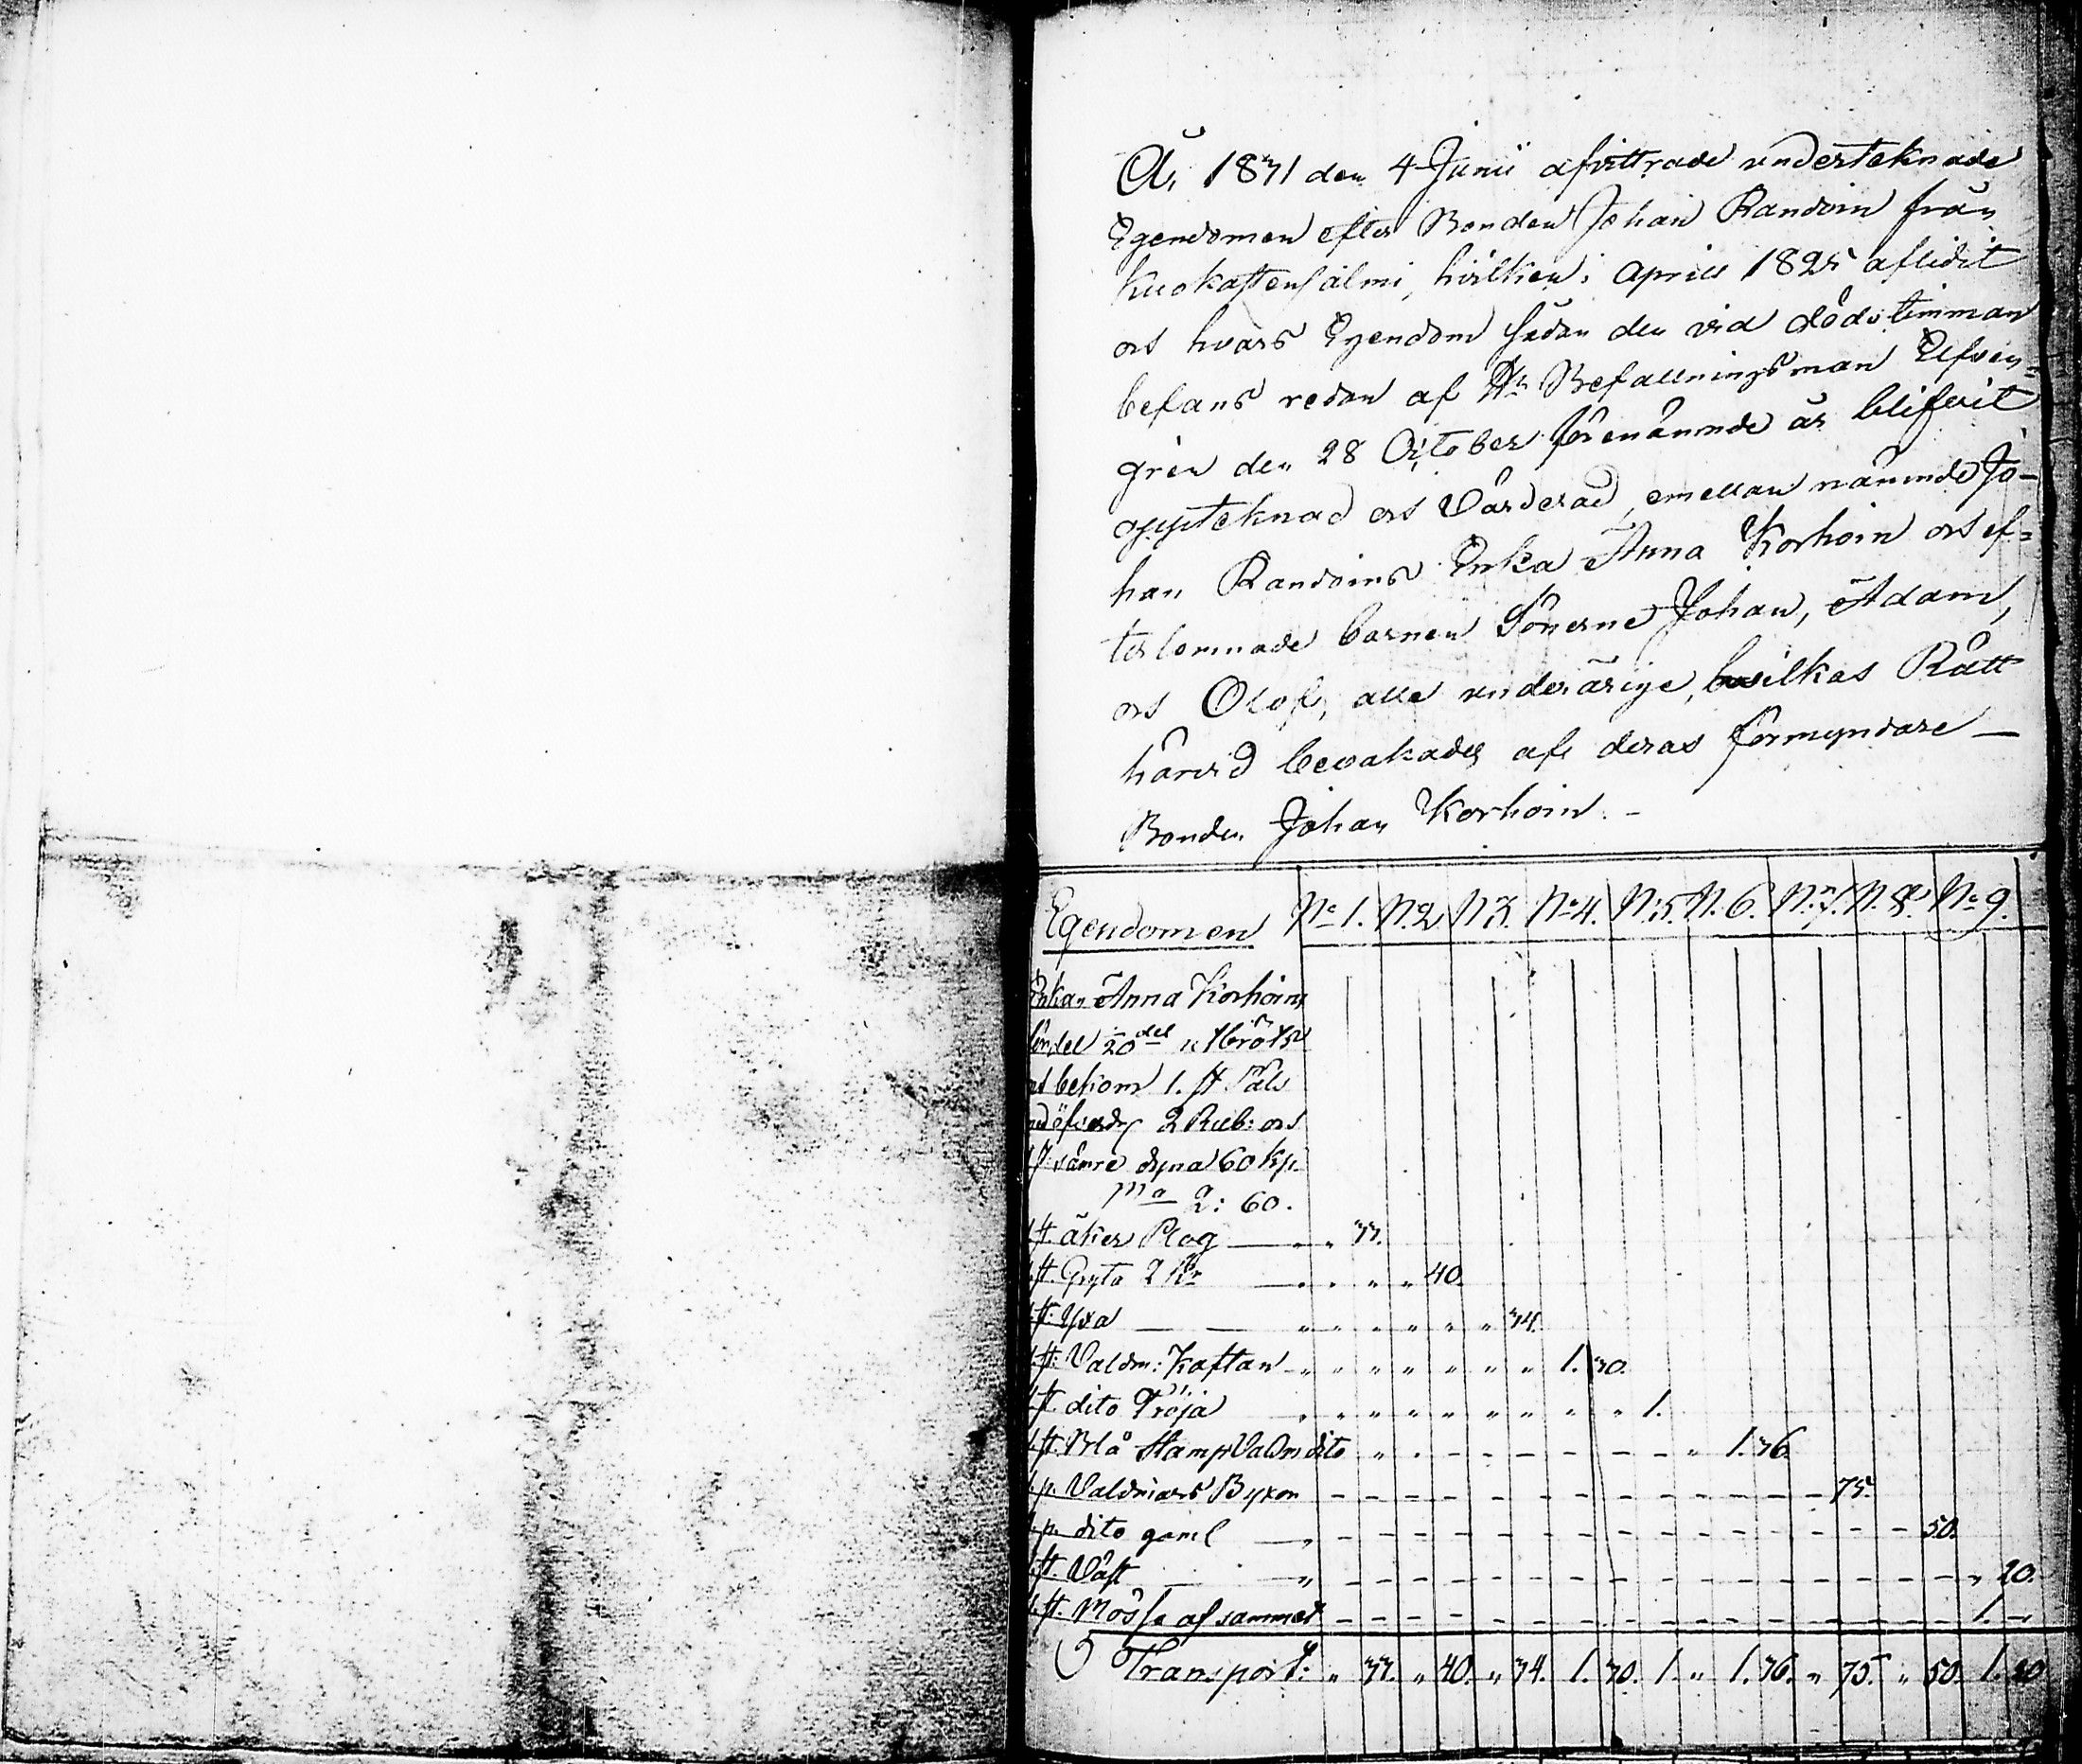 År 1831 den 4 Junii afvittrade undertecknade
Egendomen efter Bonden Johan Randoin från
Kuokastensalmi, hvilken i April 1825 aflidit
och hvars Egendom sådan den vid dödstimman
befans redan af Hr Befallningsman Elfven=
gren den 28 October förenämnde år blifvit
uppteknad och Värderad, emellan nämnde Jo-
han Randoins Enka Anna Korhoin och ef=
terlemnade barnen Sönerne Johan, Adam,
och Olof, alle underårige, hvilkas Rätt
härvid bevakades af deras förmyndare —
Bonden Johan Korhoin. -
Egendomen No 1. N:2 N 3. No 4. N:5. N. 6. N:7. N. 8. No 9.
Enkan Anna Korhoins
fördel 20del utbröts
och bekom 1. st Päls
med öfverdrg 2 Rub: och
1 st: sämre dyna 60 kp.
2: 60.
1 st. åker Plog — „ 33.
1 st. Gryta 2 Kr — „ „ „ 40.
1 st: Yxa — — „ „ „ „ „ „ 34.
1 st: Valdm: Kaftan „ „ „ „ „ „ „ 1. 30.
1 st dito Tröja „ „ „ „ „ „ „ „ „ 1.
1 st. Blå Stamp Valdm dito „ - - - - - - - „ 1. 36.
1. p. Valdmars Byxor - - - - - - - - - - - - - 75.
1. p. dito gaml — - - - - - - - - - - - - - - - 50.
1. st. Väst — „ - - - - - - - - - - - - - - - - „ 20.
1. st. Mössa af sammet - - - - - - - - - - - - - - - - 1. -
Transport: „ 33. „ 40. „ 34. 1. 30. 1. „ 1. 36. „ 75. „ 50. 1. 20